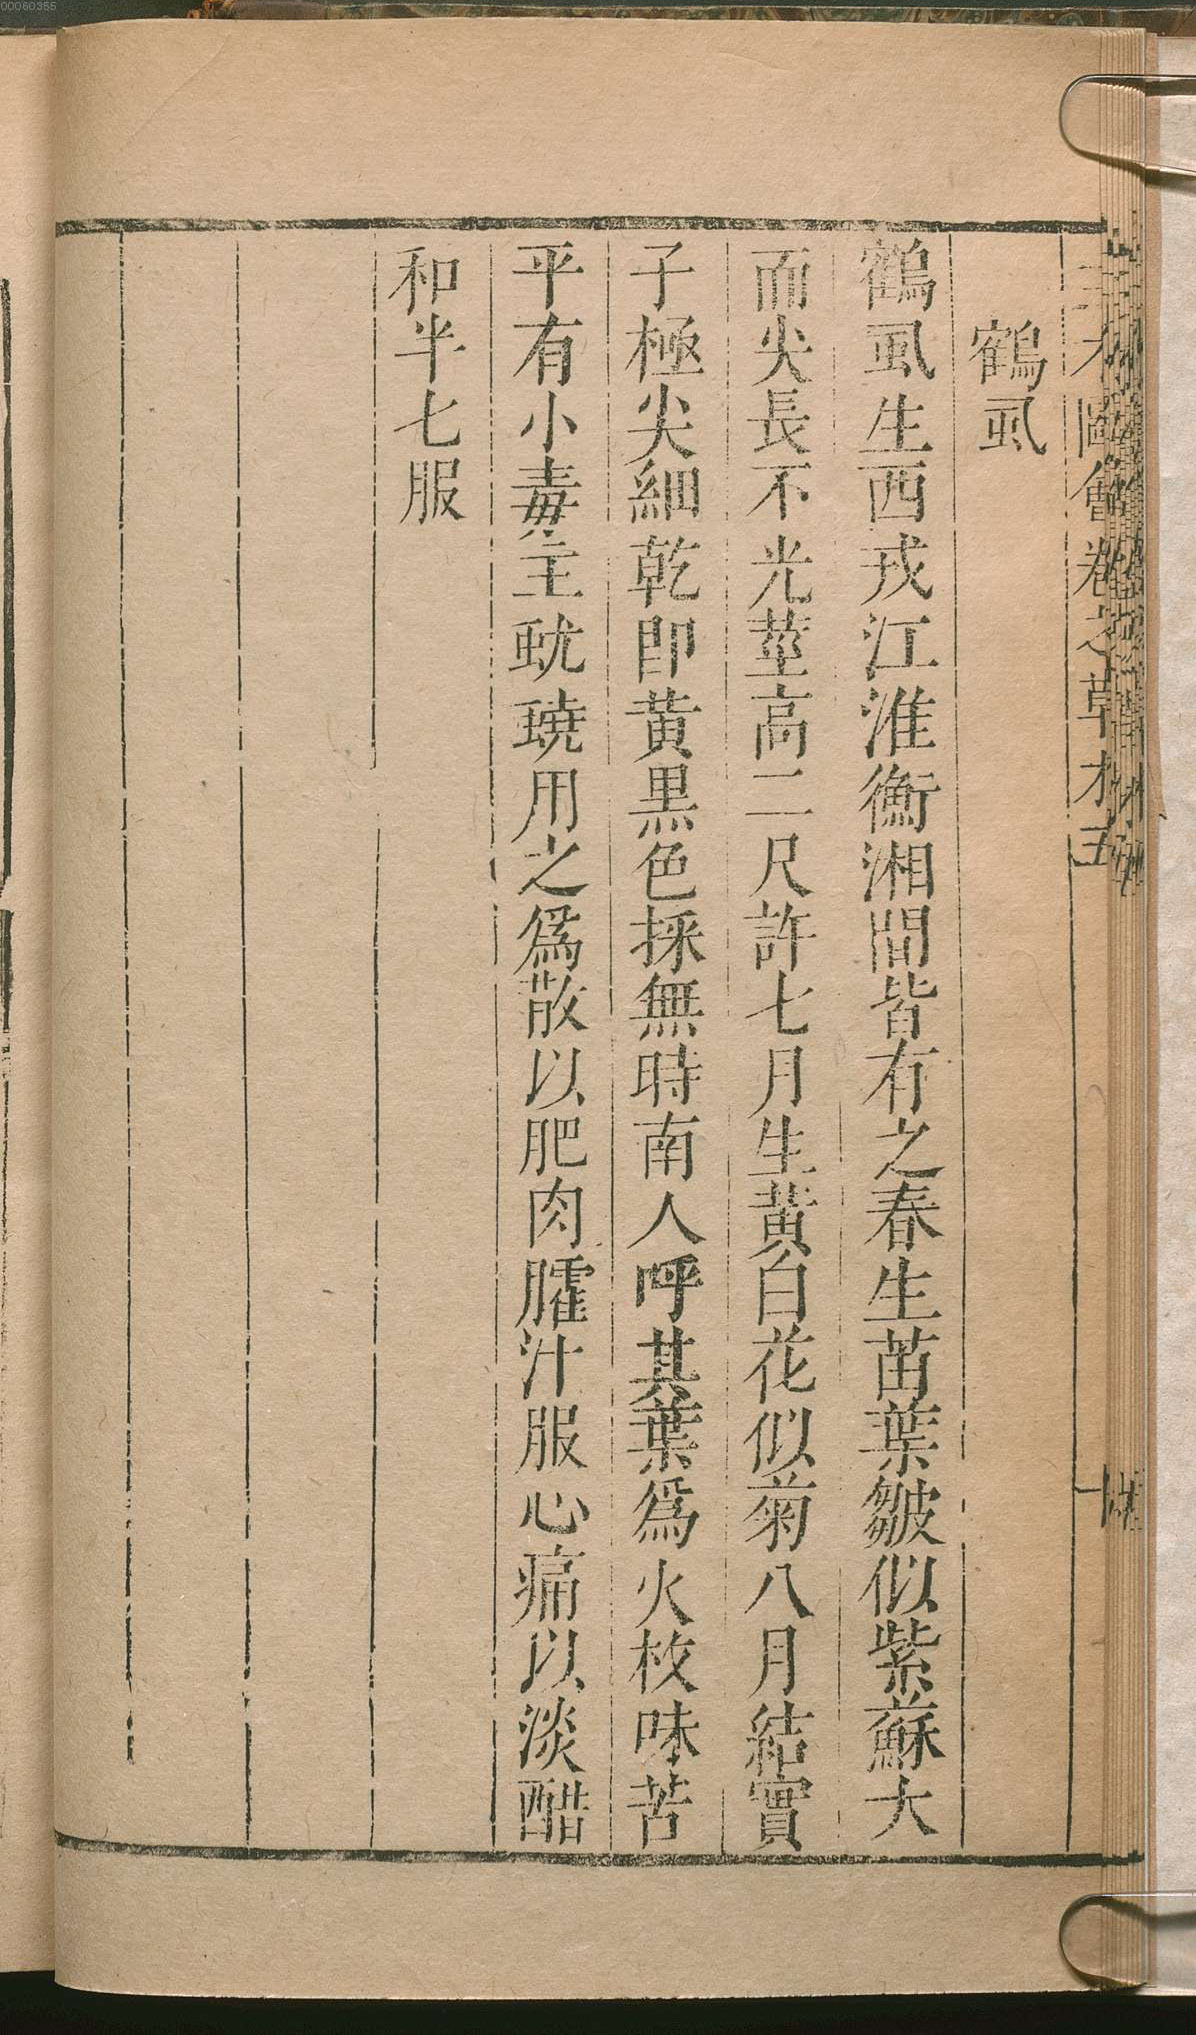 00060355
三才圖會卷之草木五
十
鶴虱
鶴虱生西戎江淮衡湘間皆有之春生苗葉皺似紫蘇大
而尖長不光莖高二尺許七月生黃白花似菊八月結實
子極尖細乾即黃黑色採無時南人呼其葉為火枚味苦
平有小毒主蚘蟯用之為散以肥肉臛汁服心痛以淡醋
和半七服